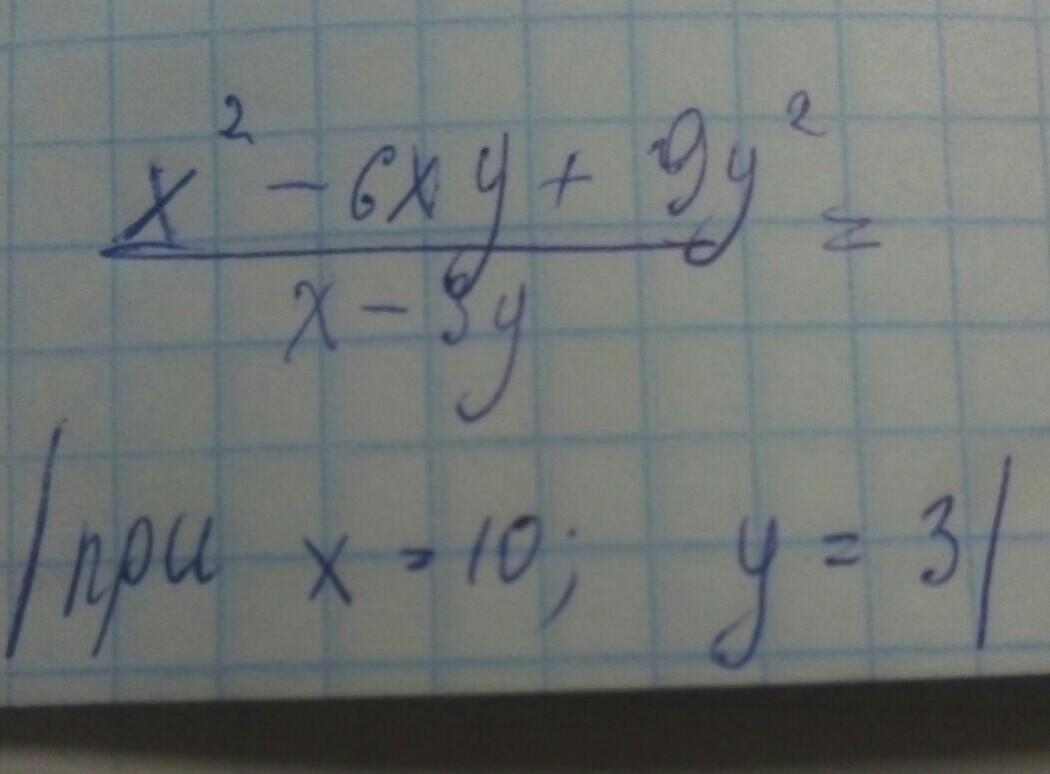 x² - 6xy + 9y² =
x - 3y
/при x = 10; y = 3/